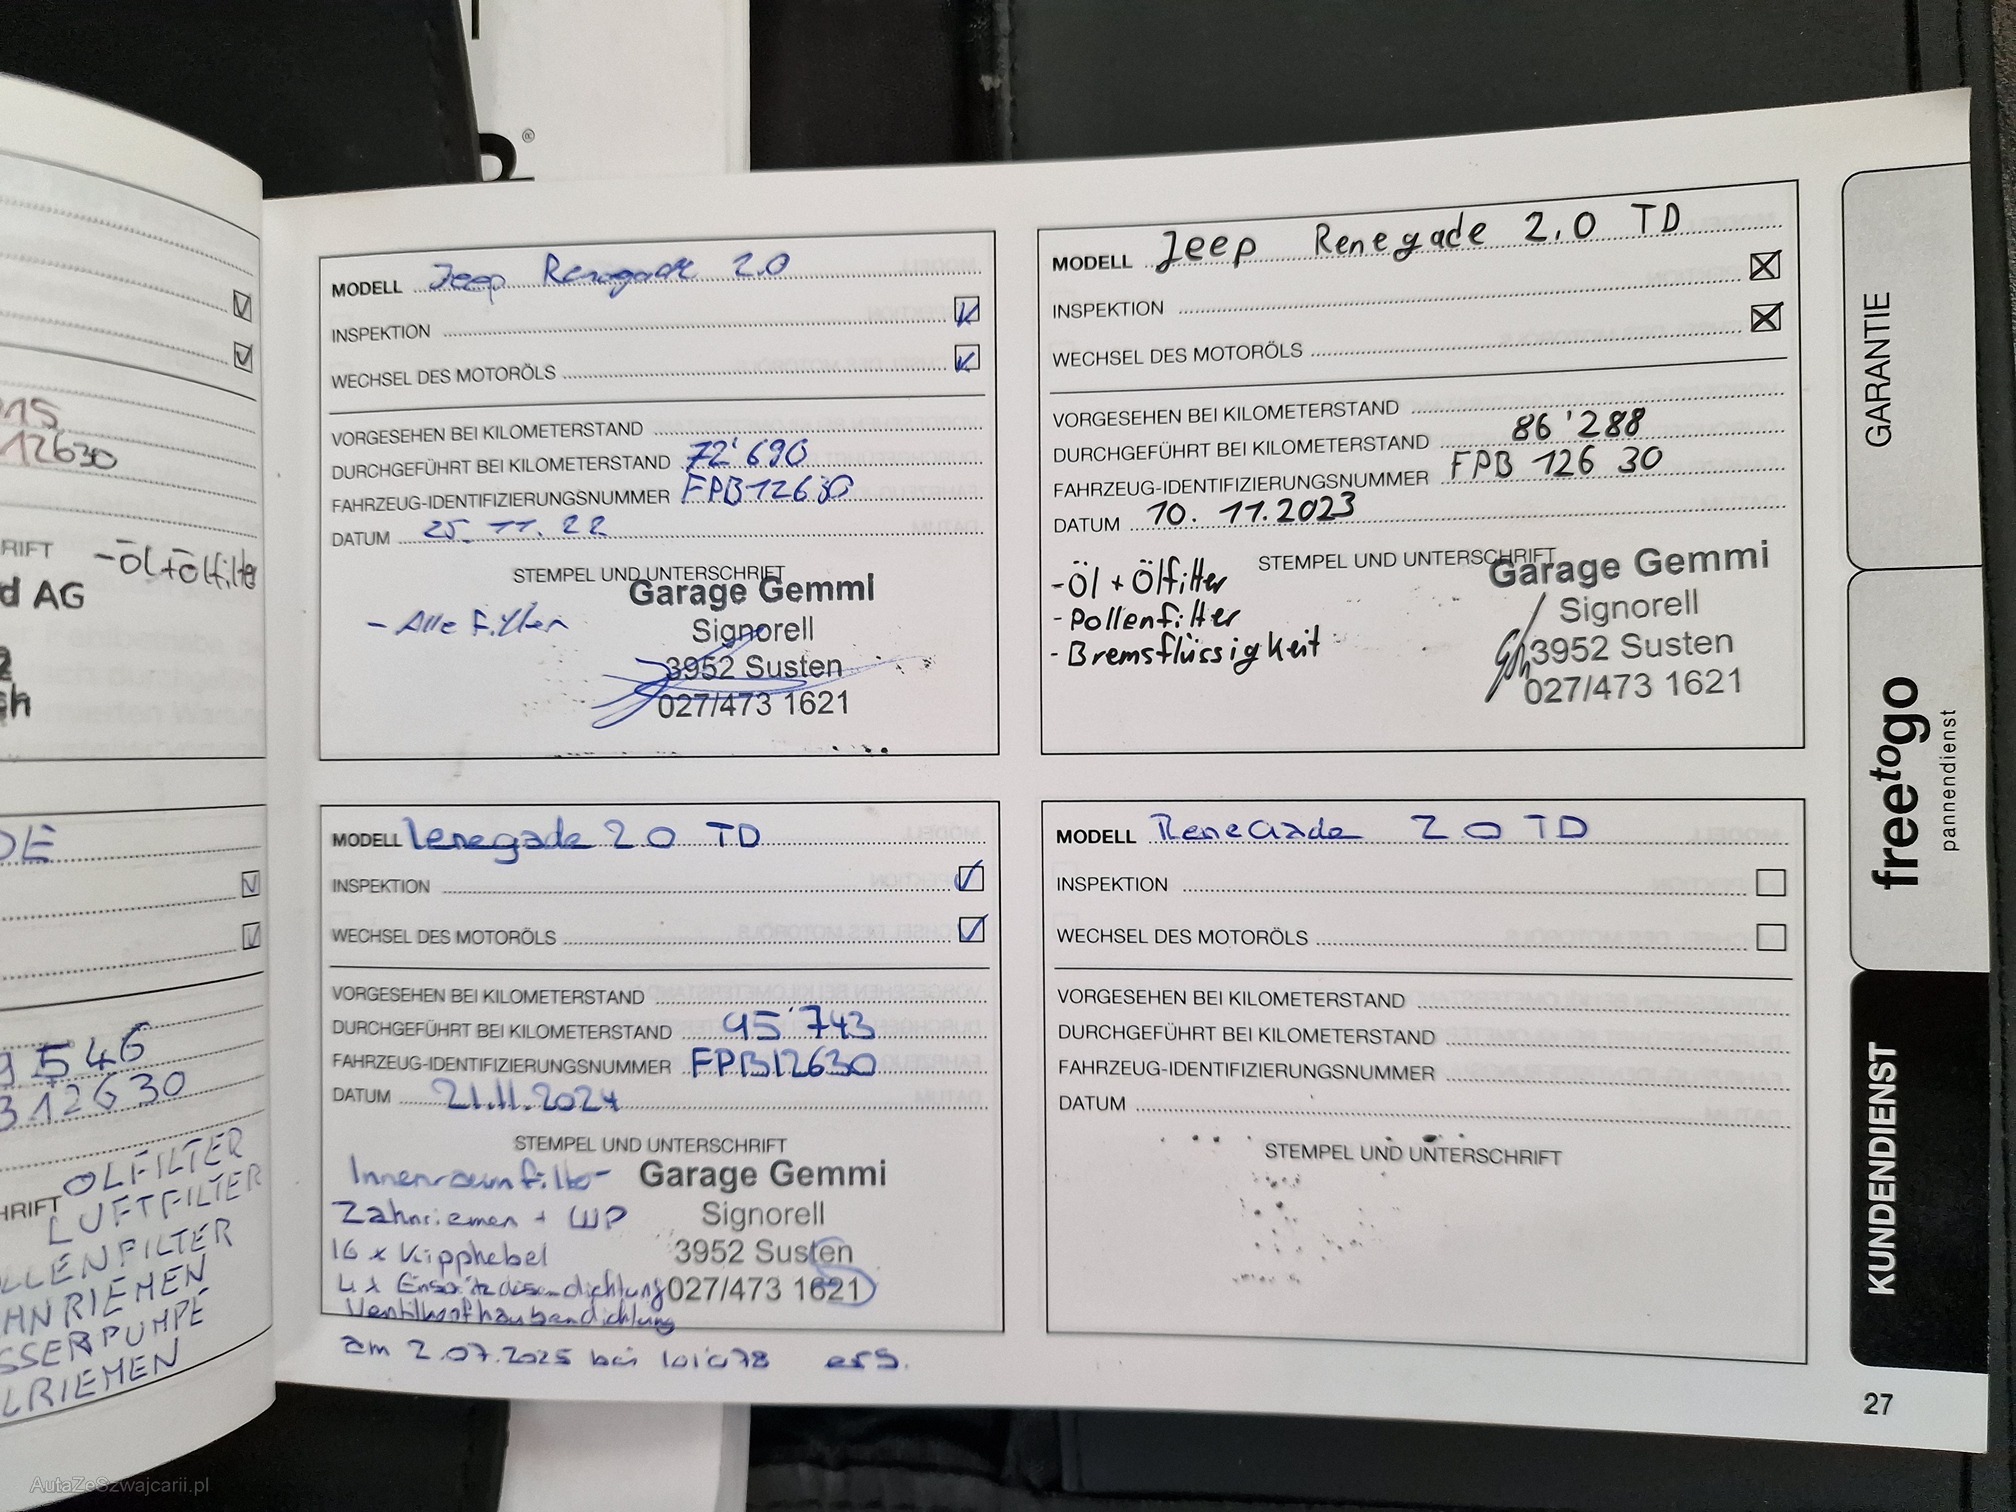 ®
915
12630
RIFT
-Öl+Ölfilter
d AG
sh
DE
9546
B12630
HRIFT
ÖLFILTER
LUFTFILTER
LLENFILTER
HNRIEMEN
SSERPUMPE
LRIEMEN
MODELL Jeep Renegade 2.0
INSPEKTION
WECHSEL DES MOTORÖLS
VORGESEHEN BEI KILOMETERSTAND
DURCHGEFÜHRT BEI KILOMETERSTAND 72'690
FAHRZEUG-IDENTIFIZIERUNGSNUMMER FPB12630
DATUM 25.11.22
STEMPEL UND UNTERSCHRIFT
Garage Gemmi
- Alle Filter
Signorell
3952 Susten
027/473 1621
MODELL Jeep Renegade 2.0 TD
INSPEKTION
WECHSEL DES MOTORÖLS
VORGESEHEN BEI KILOMETERSTAND
DURCHGEFÜHRT BEI KILOMETERSTAND 86'288
FAHRZEUG-IDENTIFIZIERUNGSNUMMER FPB 126 30
DATUM 10.11.2023
STEMPEL UND UNTERSCHRIFT
Garage Gemmi
- Öl + Ölfilter
Signorell
- Pollenfilter
3952 Susten
- Bremsflüssigkeit
027/473 1621
MODELL Renegade 2.0 TD
INSPEKTION
WECHSEL DES MOTORÖLS
VORGESEHEN BEI KILOMETERSTAND
DURCHGEFÜHRT BEI KILOMETERSTAND 95'743
FAHRZEUG-IDENTIFIZIERUNGSNUMMER FPB12630
DATUM 21.11.2024
STEMPEL UND UNTERSCHRIFT
Innenraumfilter
Garage Gemmi
Zahnriemen + WP
Signorell
16 x Kipphebel
3952 Susten
4 x Einspritzdüsendichtung
027/473 1621
Ventilkopfhaubendichtung
am 2.07.2025 bei 101'078 ers.
MODELL Renegade 2.0 TD
INSPEKTION
WECHSEL DES MOTORÖLS
VORGESEHEN BEI KILOMETERSTAND
DURCHGEFÜHRT BEI KILOMETERSTAND
FAHRZEUG-IDENTIFIZIERUNGSNUMMER
DATUM
STEMPEL UND UNTERSCHRIFT
GARANTIE
freetogo
pannendienst
KUNDENDIENST
27
AutaZeSzwajcarii.pl